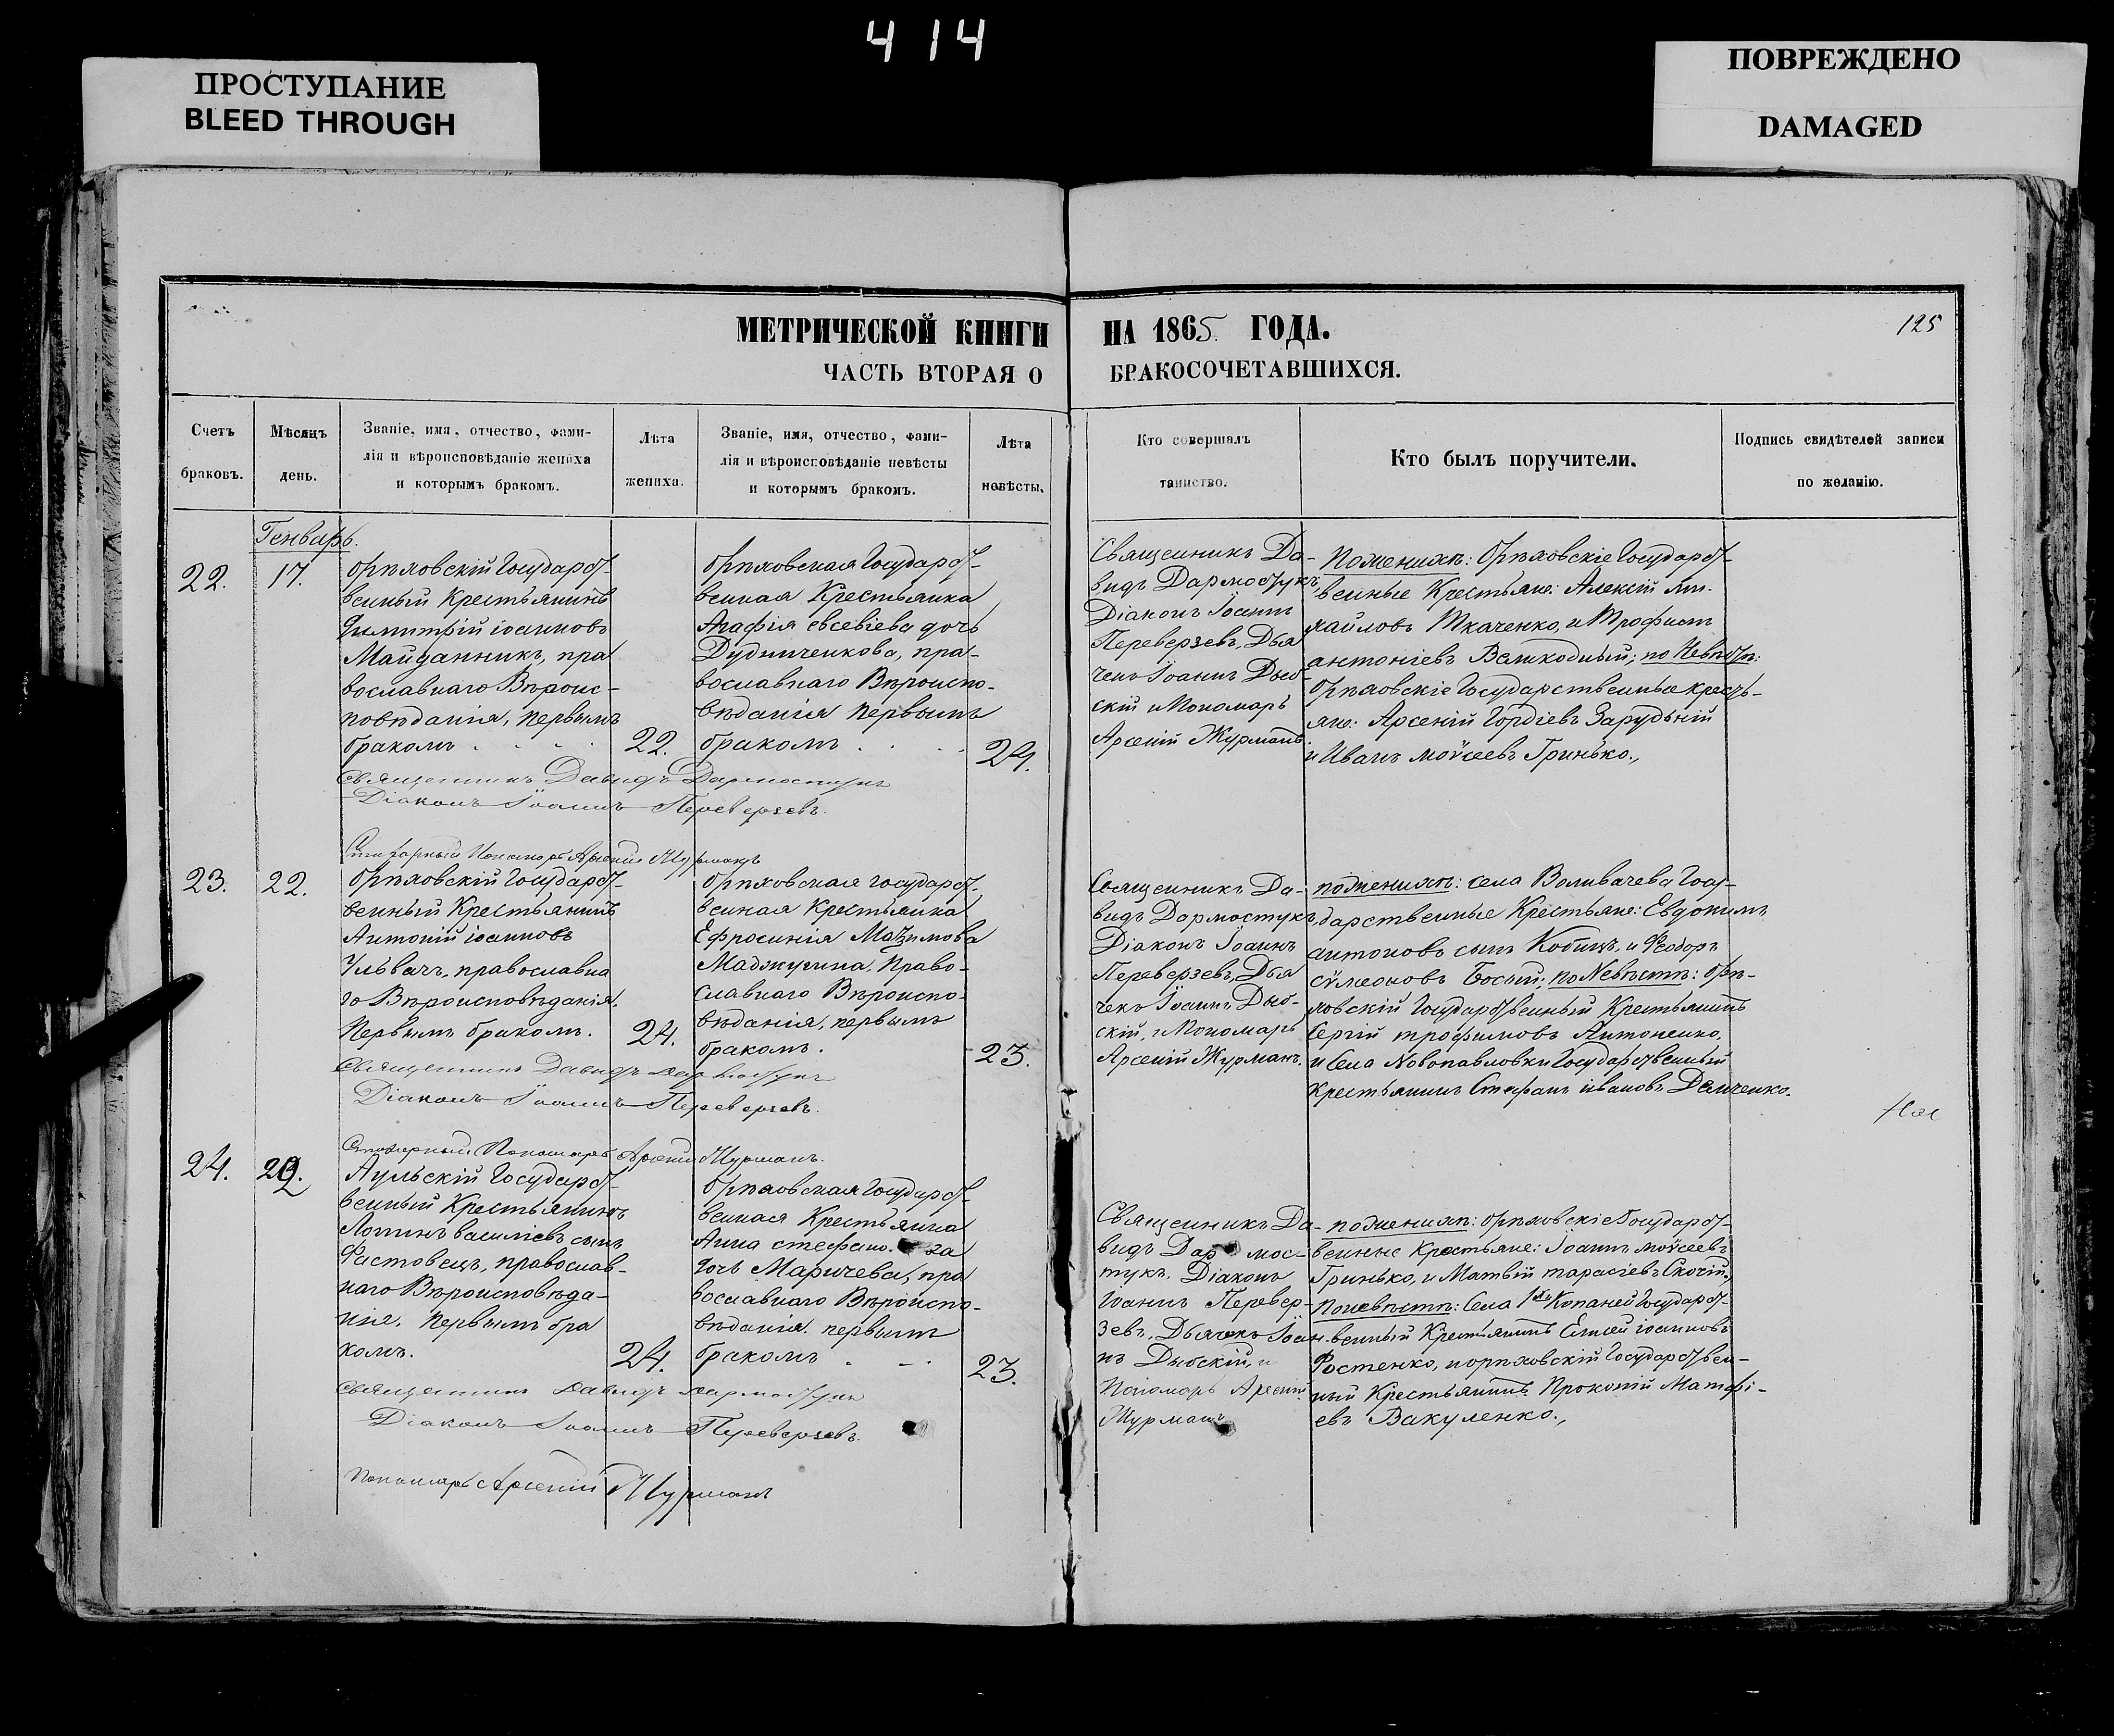 414
ПРОСТУПАНИЕ
BLEED THROUGH
ПОВРЕЖДЕНО
DAMAGED
МЕТРИЧЕСКОЙ КНИГИ НА 1865 ГОДА.
125
ЧАСТЬ ВТОРАЯ О БРАКОСОЧЕТАВШИХСЯ.
Счетъ
браковъ.
Мѣсяцъ
день.
Званіе, имя, отчество, фами-
лія и вѣроисповѣданіе жениха
и которымъ бракомъ.
Лѣта
жениха.
Званіе, имя, отчество, фами-
лія и вѣроисповѣданіе невѣсты
и которымъ бракомъ.
Лѣта
невѣсты.
Кто совершалъ
таинство.
Кто былъ поручители.
Подпись свидѣтелей записи
по желанію.
Генварь.
22.
17.
Орѣховскій Государст-
венный Крестьянинъ
Димитрій іоанновъ
Майданникъ, пра
вославнаго Вѣроис-
повѣданія, первымъ
бракомъ
22.
Орѣховская Государст-
венная Крестьянка
Агафія евсевіева дочь
Дудниченкова, пра-
вославнаго Вѣроиспо-
вѣданія первымъ
бракомъ
24.
Священникъ Да-
видъ Дармостукъ,
Діаконъ Іоаннъ
Переверзевъ, Дья
чекъ Іоаннъ Дыб-
скій и Пономарь
Арсеній Журманъ.
По женихѣ: Орѣховскіе Государст-
венные Крестьяне: Алексій ми-
хайловъ Ткаченко, и Трофимъ
антоніевъ Великодный; по Невѣстѣ:
Орѣховскіе Государственные кресть-
яне: Арсеній Гордіевъ Зарудній
и Иванъ моѵсеевъ Гринько.,
Священникъ Давидъ Дармостукъ
Діаконъ Іоаннъ Переверзевъ.
Пономарь Арсеній Журманъ
23.
22.
Орѣховскій Государст-
венный Крестьянинъ
Антоній іоанновъ
православна
го Вѣроисповѣданія.
Первымъ бракомъ.
24.
Орѣховская государст-
венная Крестьянка
Ефросинія Маѯимова
Маджугина, Право-
славнаго Вѣроиспо-
вѣданія, первымъ
бракомъ.
23.
Священникъ Да-
видъ Дармостукъ,
Діаконъ Іоаннъ
Переверзевъ, Дья
чекъ Іоаннъ Дыб-
скій, и Пономарь
Арсеній Журманъ.
по женихѣ: села Воливачева Госу-
дарственные Крестьяне: Евдокимъ
антоновъ сынъ Кобицъ, и Феодоръ
сѵмеоновъ Босый; по Невѣстѣ: орѣ-
ховскій Государственный Крестьянинъ
Сергій трофимовъ Антоненко,
и Села Новопавловки Государственный
крестьянинъ Стефанъ ивановъ Демченко.
Священникъ Давидъ Дармостукъ
Діаконъ Іоаннъ Переверзевъ.
Пономарь Арсеній Журманъ.
24.
Аульскій Государст-
венный Крестьянинъ
Логинъ василіевъ сынъ
Фастовецъ, православ-
наго Вѣроисповѣда-
нія. Первымъ бра
комъ.
24.
Орѣховская Государст-
венная Крестьянка
Анна
дочь Маричева, пра
вославнаго Вѣроиспо-
вѣданія. первымъ
бракомъ
23.
Священникъ Да-
видъ Дармос-
тукъ, Діаконъ
Іоаннъ Перевер-
зевъ, Дьячекъ Іоан-
нъ Дыбскій, и
Пономарь Арсеній
Журманъ
по женихѣ: орѣховскіе Государст-
венные Крестьяне: Іоаннъ моѵсеевъ
Гринько, и Матвій тарасіевъ Скочій,
По невѣстѣ: Села 1й Копаней Государст-
венный Крестьянинъ Елисей іоанновъ
Ростенко, и орѣховскій Государствен-
ный Крестьянинъ Прокопій Матфі-
евъ Вакуленко.,
Священникъ Давидъ Дармостукъ
Діаконъ Іоаннъ Переверзевъ.
Пономарь Арсеній Журманъ